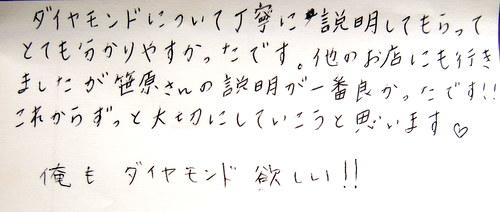 ダイヤモンドについて丁寧に説明してもらって
とても分かりやすかったです。他のお店にも行き
ましたが笹原さんの説明が一番良かったです!!
これからずっと大切にしていこうと思います♡
俺も ダイヤモンド 欲しい!!